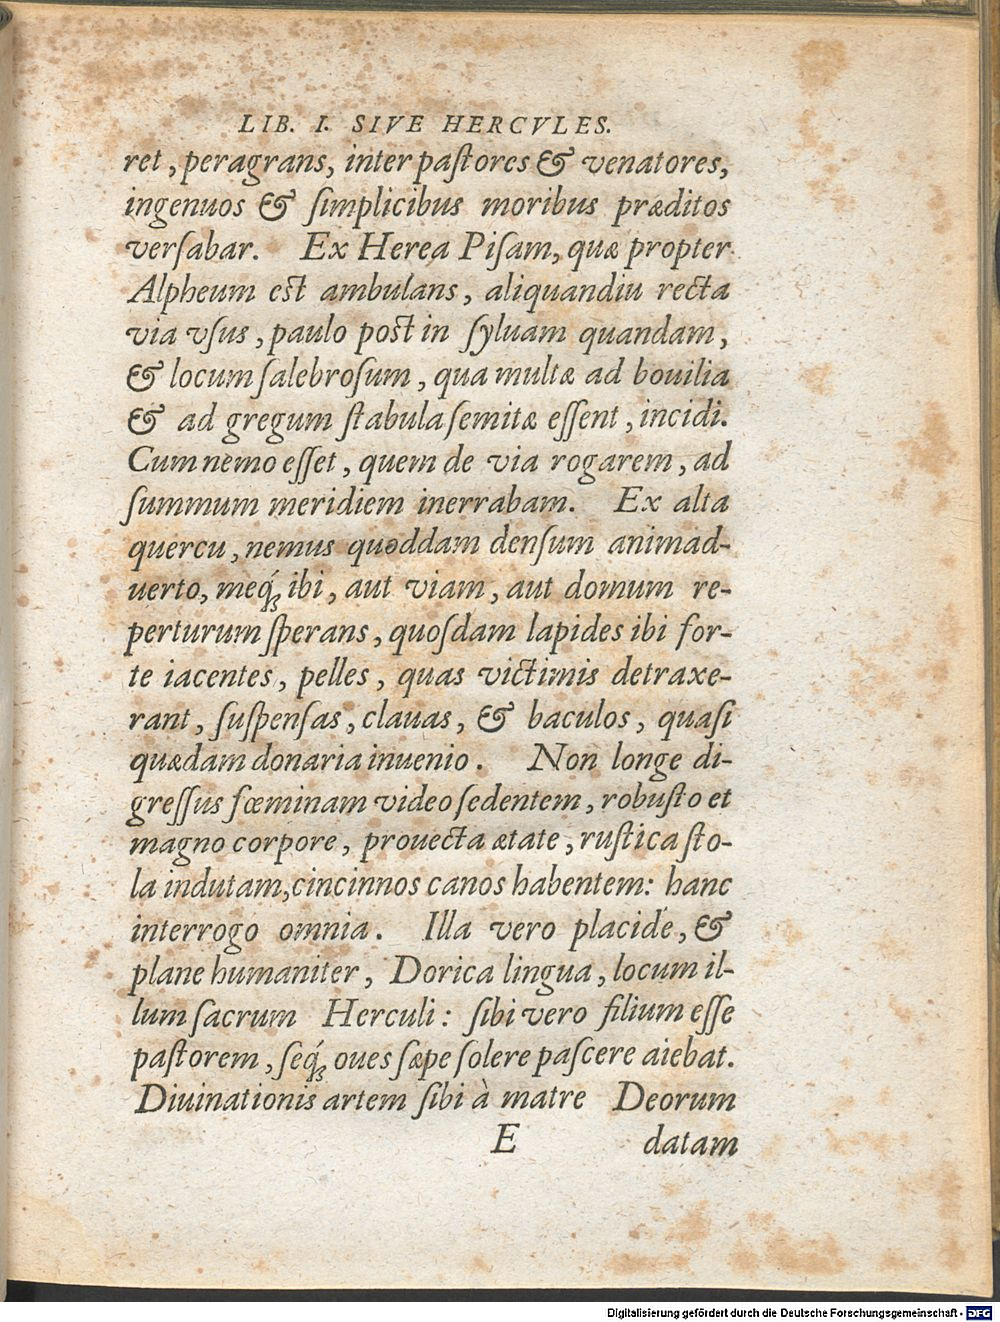 LIB. I. SIVE HERCVLES.
ret, peragrans, inter paſtores & venatores,
ingenuos & ſimplicibus moribus præditos
verſabar. Ex Herea Piſam, quæ propter
Alpheum eſt ambulans, aliquandiu recta
via vſus, paulo poſt in ſyluam quandam,
& locum ſalebroſum, qua multæ ad bouilia
& ad gregum ſtabula ſemitæ eſſent, incidi.
Cum nemo eſſet, quem de via rogarem, ad
ſummum meridiem inerrabam. Ex alta
quercu, nemus quoddam denſum animad-
uerto, meq́ꝫ ibi, aut viam, aut domum re-
perturum ſperans, quoſdam lapides ibi for-
te iacentes, pelles, quas victimis detraxe-
rant, ſuſpenſas, clauas, & baculos, quaſi
quædam donaria inuenio. Non longe di-
greſſus fœminam video ſedentem, robuſto et
magno corpore, prouecta ætate, ruſtica ſto-
la indutam, cincinnos canos habentem: hanc
interrogo omnia. Illa vero placide, &
plane humaniter, Dorica lingua, locum il-
lum ſacrum Herculi: ſibi vero filium eſſe
paſtorem, ſeq́ꝫ oues ſæpe ſolere paſcere aiebat.
Diuinationis artem ſibi à matre Deorum
E datam
Digitalisierung gefördert durch die Deutsche Forschungsgemeinschaft - DFG